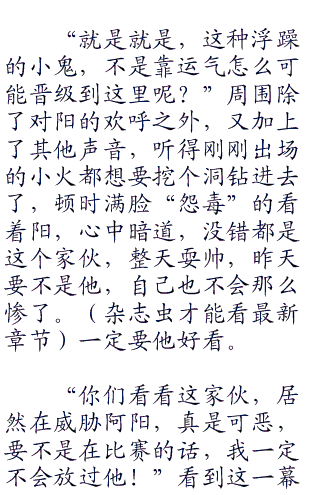 “就是就是，这种浮躁
的小鬼，不是靠运气怎么可
能晋级到这里呢？”周围除
了对阳的欢呼之外，又加上
了其他声音，听得刚刚出场
的小火都想要挖个洞钻进去
了，顿时满脸“怨毒”的看
着阳，心中暗道，没错都是
这个家伙，整天耍帅，昨天
要不是他，自己也不会那么
惨了。（杂志虫才能看最新
章节）一定要他好看。
“你们看看这家伙，居
然在威胁阿阳，真是可恶，
要不是在比赛的话，我一定
不会放过他！”看到这一幕